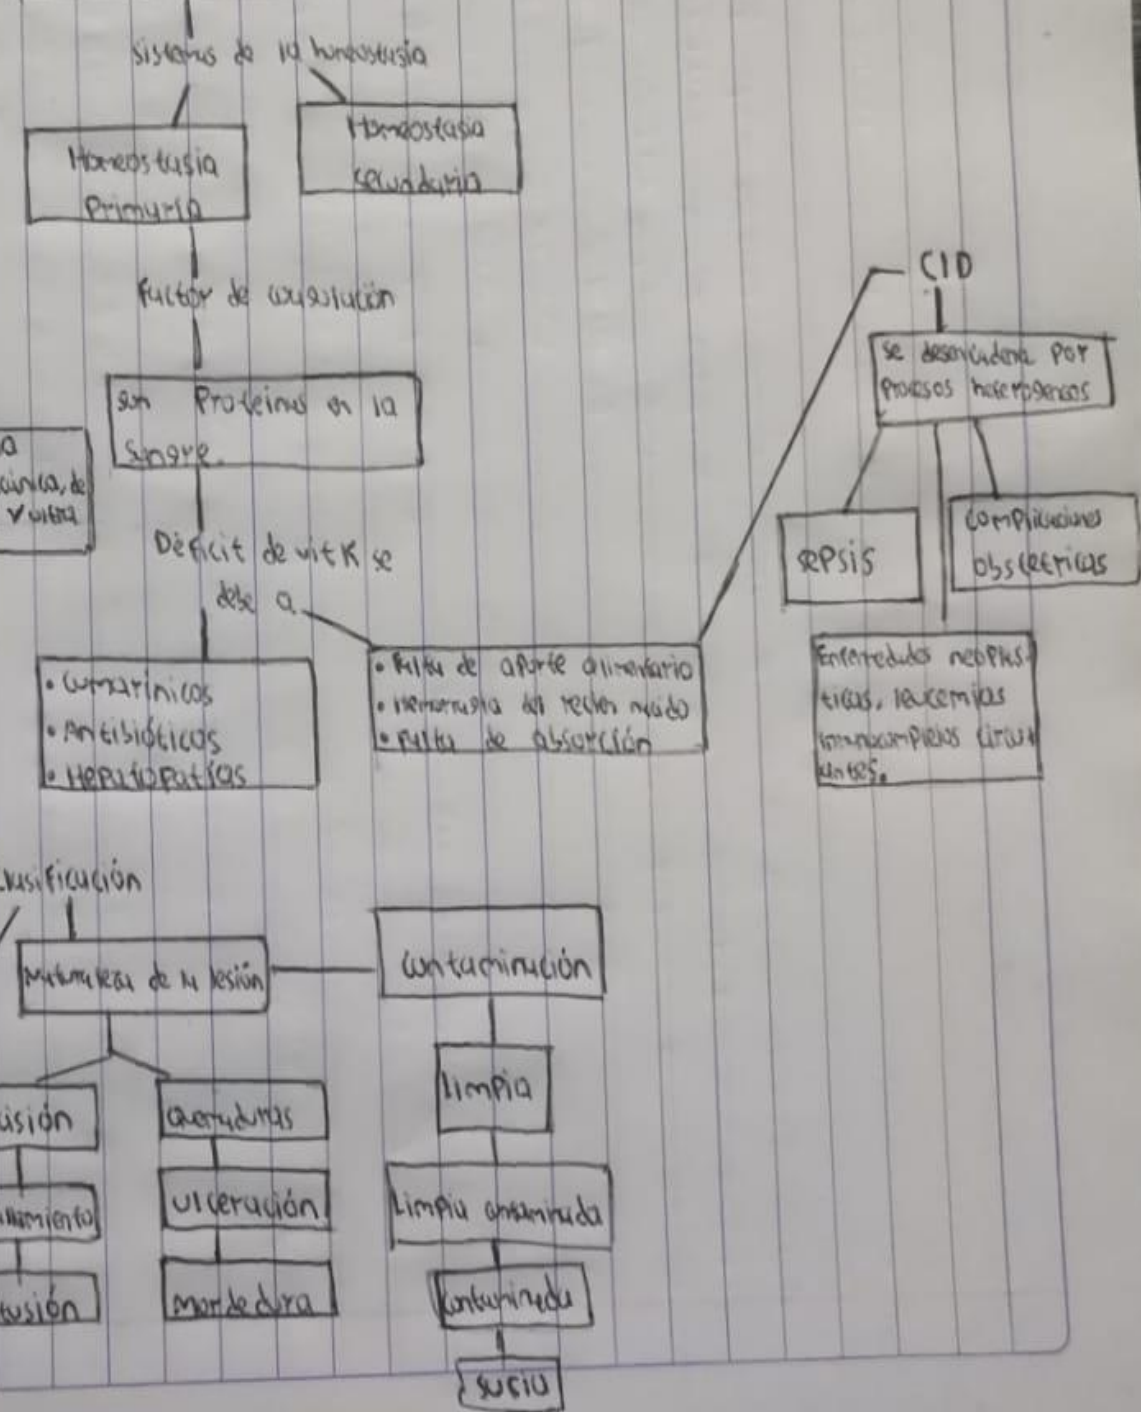 sistemas de la homeostasia
Homeostasia
Primaria
Homeostasia
secundaria
Factor de coagulación
son Proteinas en la
Sangre.
Déficit de vit K se
debe a
• Cumarínicos
• Antibióticos
• Hepatopatías
• Falta de aporte alimentario
• Hemorragia del recien nacido
• Falta de absorción
CID
se desencadena por
Procesos heterogeneos
sepsis
Complicaciones
obstetricas
neoplas-
ticas, leucemias
inmunocomplejos circul
antes.
Clasificación
Naturaleza de la lesión
cisión
usión
Quemaduras
Ulceración
Mordedura
Contaminación
Limpia
Limpia
Contaminada
sucia